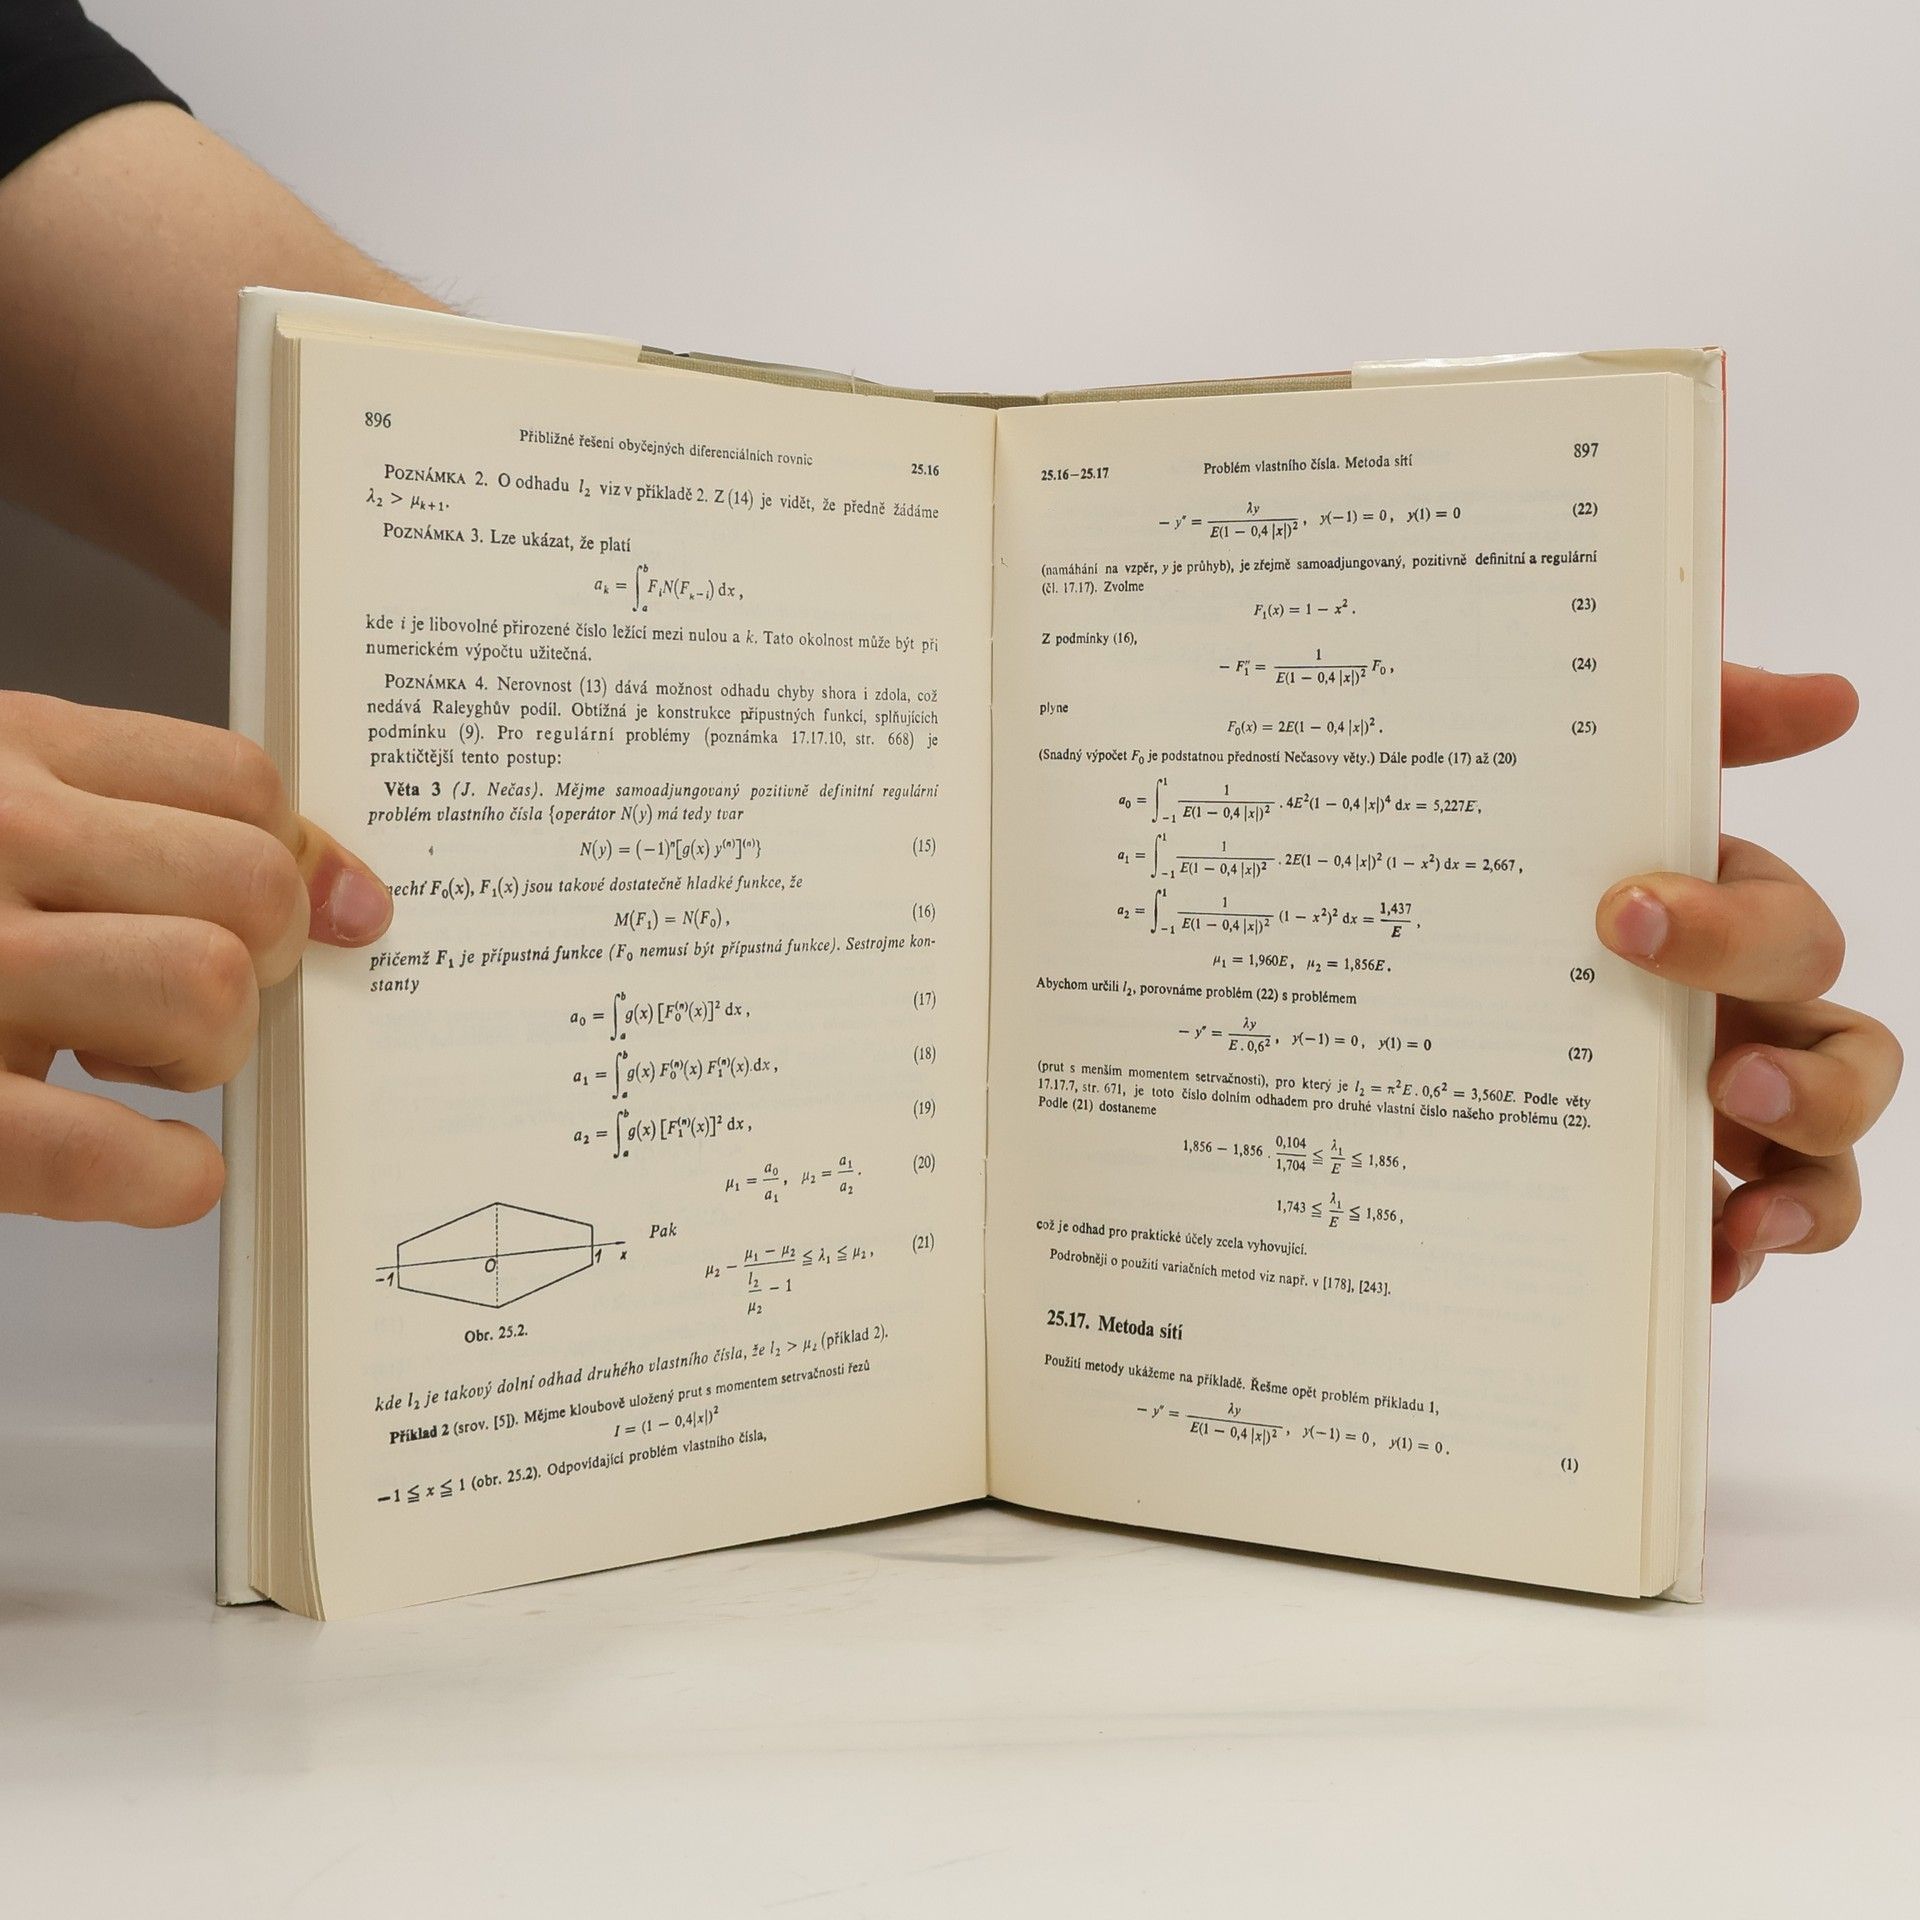 896
Přibližné řešení obyčejných diferenciálních rovnic
25.16
POZNÁMKA 2. O odhadu l₂ viz v příkladě 2. Z (14) je vidět, že předně žádáme
λ₂ > μₖ₊₁.
POZNÁMKA 3. Lze ukázat, že platí
aₖ = ∫ₐᵇ FᵢN(Fₖ₋ᵢ) dx ,
kde i je libovolné přirozené číslo ležící mezi nulou a k. Tato okolnost může být při
numerickém výpočtu užitečná.
POZNÁMKA 4. Nerovnost (13) dává možnost odhadu chyby shora i zdola, což
nedává Raleyghův podíl. Obtížná je konstrukce přípustných funkcí, splňujících
podmínku (9). Pro regulární problémy (poznámka 17.17.10, str. 668) je
praktičtější tento postup:
Věta 3 (J. Nečas). Mějme samoadjungovaný pozitivně definitní regulární
problém vlastního čísla {operátor N(y) má tedy tvar
N(y) = (−1)ⁿ[g(x) y⁽ⁿ⁾]⁽ⁿ⁾} (15)
nechť F₀(x), F₁(x) jsou takové dostatečně hladké funkce, že
M(F₁) = N(F₀) , (16)
přičemž F₁ je přípustná funkce (F₀ nemusí být přípustná funkce). Sestrojme kon-
stanty
a₀ = ∫ₐᵇ g(x) [F₀⁽ⁿ⁾(x)]² dx , (17)
a₁ = ∫ₐᵇ g(x) F₀⁽ⁿ⁾(x) F₁⁽ⁿ⁾(x) dx , (18)
a₂ = ∫ₐᵇ g(x) [F₁⁽ⁿ⁾(x)]² dx , (19)
μ₁ = a₀/a₁ , μ₂ = a₁/a₂ . (20)
Pak
μ₂ − (μ₁ − μ₂)/(l₂/μ₂ − 1) ≦ λ₁ ≦ μ₂ , (21)
−1 O 1 x
Obr. 25.2.
kde l₂ je takový dolní odhad druhého vlastního čísla, že l₂ > μ₂ (příklad 2).
Příklad 2 (srov. [5]). Mějme kloubově uložený prut s momentem setrvačnosti řezů
I = (1 − 0,4|x|)²
−1 ≦ x ≦ 1 (obr. 25.2). Odpovídající problém vlastního čísla,
25.16−25.17
Problém vlastního čísla. Metoda sítí
897
− y″ = λy/E(1 − 0,4 |x|)² , y(−1) = 0 , y(1) = 0 (22)
(namáhání na vzpěr, y je průhyb), je zřejmě samoadjungovaný, pozitivně definitní a regulární
(čl. 17.17). Zvolme
F₁(x) = 1 − x² . (23)
Z podmínky (16),
− F₁″ = 1/E(1 − 0,4 |x|)² F₀ , (24)
plyne
F₀(x) = 2E(1 − 0,4 |x|)² . (25)
(Snadný výpočet F₀ je podstatnou předností Nečasovy věty.) Dále podle (17) až (20)
a₀ = ∫₋₁¹ 1/E(1 − 0,4 |x|)² . 4E²(1 − 0,4 |x|)⁴ dx = 5,227E ,
a₁ = ∫₋₁¹ 1/E(1 − 0,4 |x|)² . 2E(1 − 0,4 |x|)² (1 − x²) dx = 2,667 ,
a₂ = ∫₋₁¹ 1/E(1 − 0,4 |x|)² (1 − x²)² dx = 1,437/E ,
μ₁ = 1,960E , μ₂ = 1,856E . (26)
Abychom určili l₂, porovnáme problém (22) s problémem
− y″ = λy/E . 0,6² , y(−1) = 0 , y(1) = 0 (27)
(prut s menším momentem setrvačnosti), pro který je l₂ = π²E . 0,6² = 3,560E. Podle věty
17.17.7, str. 671, je toto číslo dolním odhadem pro druhé vlastní číslo našeho problému (22).
Podle (21) dostaneme
1,856 − 1,856 . 0,104/1,704 ≦ λ₁/E ≦ 1,856 ,
1,743 ≦ λ₁/E ≦ 1,856 ,
což je odhad pro praktické účely zcela vyhovující.
Podrobněji o použití variačních metod viz např. v [178], [243].
25.17. Metoda sítí
Použití metody ukážeme na příkladě. Řešme opět problém příkladu 1,
− y″ = λy/E(1 − 0,4 |x|)² , y(−1) = 0 , y(1) = 0 .
(1)